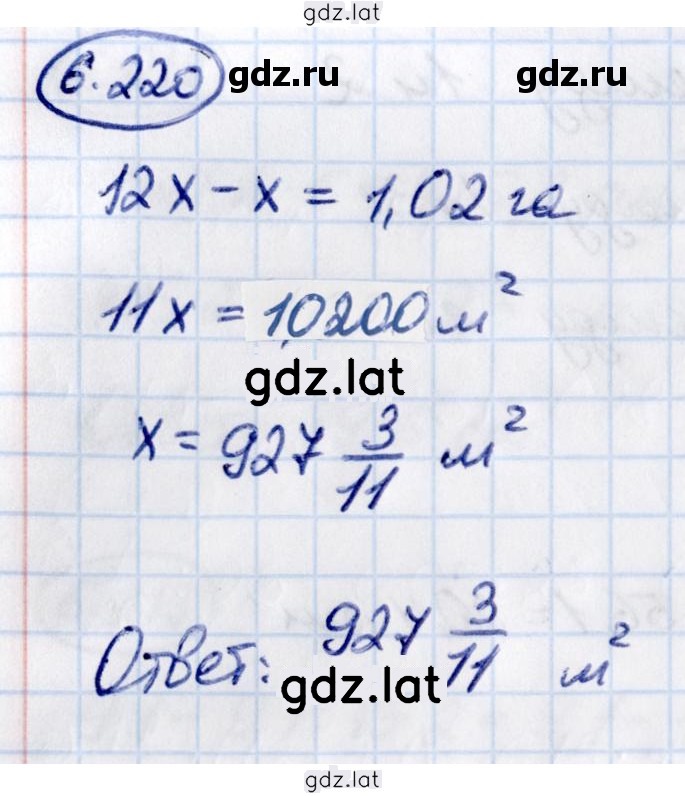 gdz.lat
6.220 gdz.ru gdz.ru
12x - x = 1,02 га
11x = 1,0200 м²
gdz.lat
x = 927 3/11 м²
Ответ: 927 3/11 м²
gdz.lat
gdz.lat